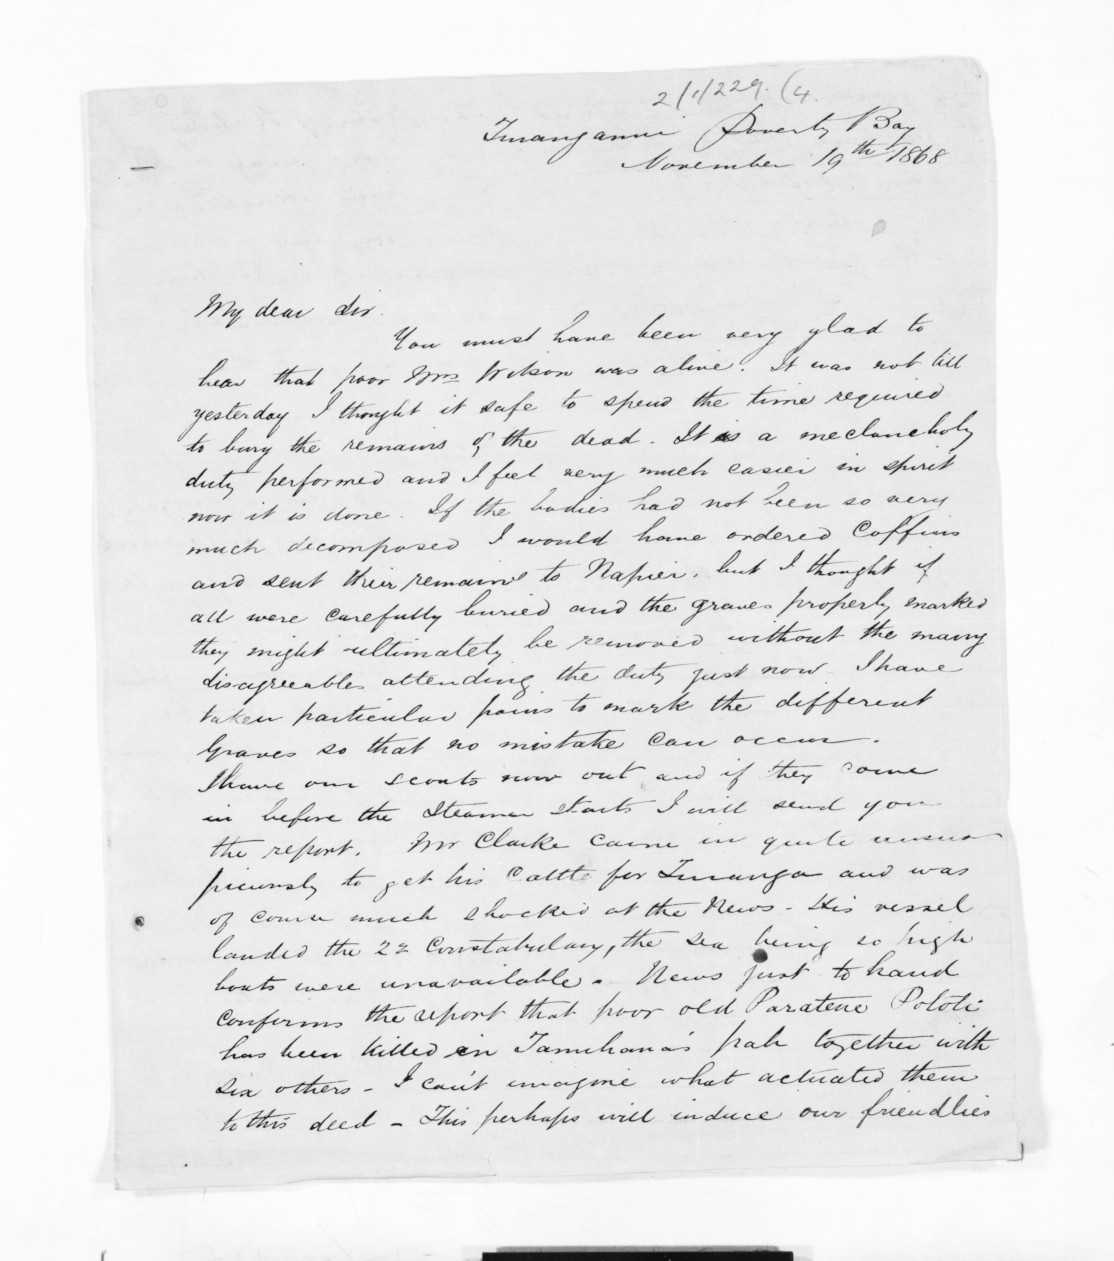 2/1/229. (4.
Turanganui Poverty Bay
November 19th 1868
My dear Sir.
You must have been very glad to
hear that poor Mrs Wilson was alive. It was not till
yesterday I thought it safe to spend the time required
to bury the remains of the dead. It is a meclancholy
duty performed and I feel very much easier in spirit
now it is done. If the bodies had not been so very
much decomposed I would have ordered Coffins
and sent their remains to Napier. but I thought if
all were carefully buried and the graves properly marked
they might ultimately be removed without the many
disagreeables attending the duty just now. I have
taken particular pains to mark the different
Graves so that no mistake can occur.
I have our scouts now out and if they come
in before the Steamer starts I will send you
the report. Mr Clarke came in quite unsus
piciously to get his Cattle for Turanga and was
of course much shocked at the News - His vessel
landed the 22 Constabulary, the sea being so high
boats were unavailable. News just to hand
confirms the report that poor old Paratene Pototi
has been killed in Tamihana's pah together with
six others - I can't imagine what actuated them
to this deed - This perhaps will induce our friendlies